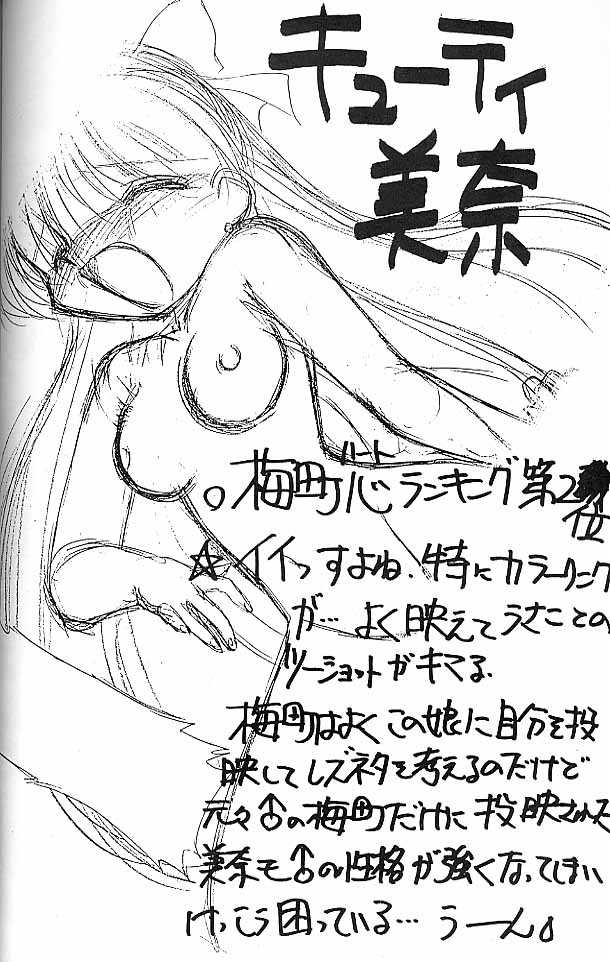 キューティ
美奈
。梅町心ランキング第2位
ハート
☆イイっすよね、特にカラーリング
が…よく映えてうさことの
ツーショットがキマる。
梅町はよくこの娘に自分を投
映してレズネタを考えるのだけど
元々♂の梅町だけに投映された
美奈も♂の性格が強くなってしまい
けっこう困っている…うーん。